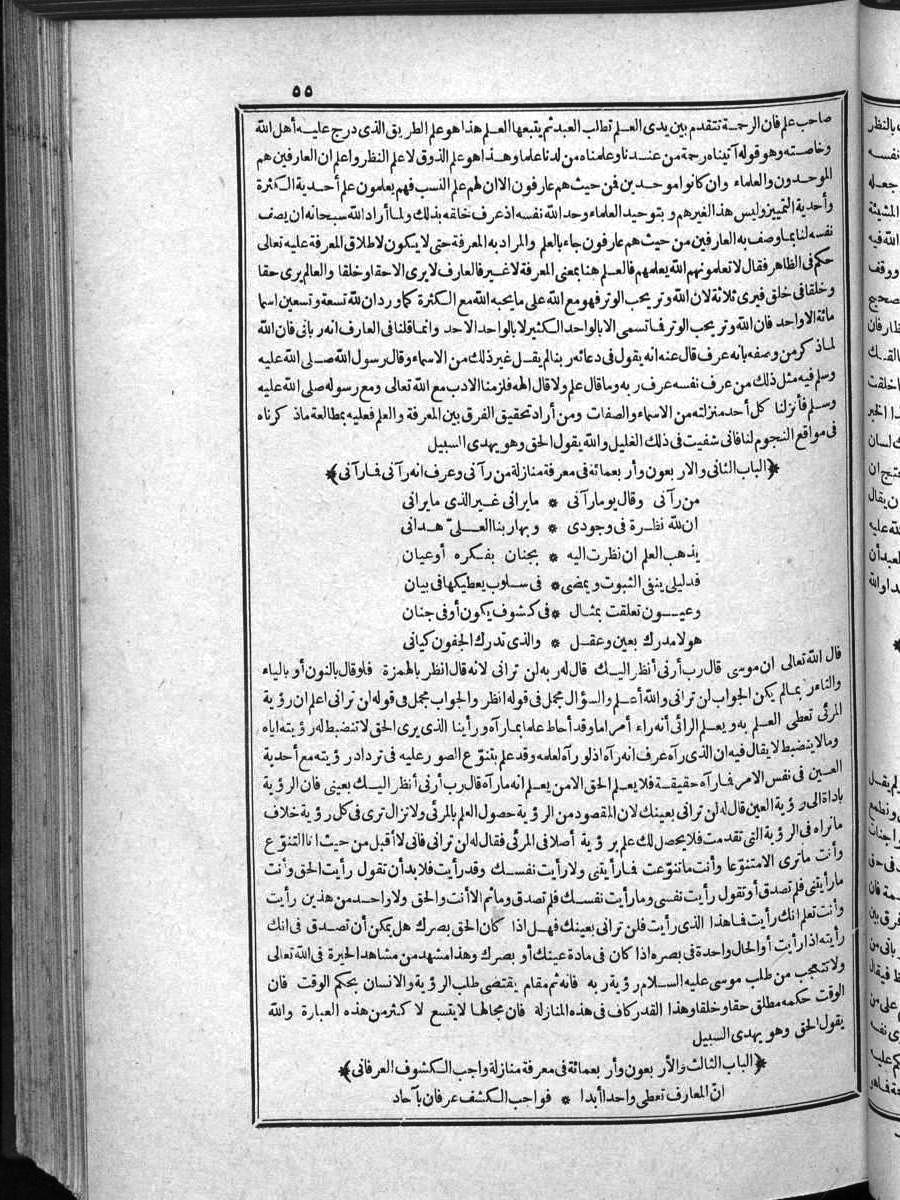 ٥٥
صاحب علم فان الرحمة تتقدم بين يدى العلم تطلب العبد ثم يتبعها العلم هذا هو علم الطريق الذى درج عليه أهل الله
وخاصته وهو قوله آتيناه رحمة من عندنا وعلمناه من لدنا علما وهذا هو علم الذوق لا علم النظر واعلم ان العارفين هم
الموحدون والعلماء وان كانوا موحدين فمن حيث هم عارفون الا ان لهم علم النسب فهم يعلمون علم أحدية الكثرة
وأحدية التمييز وليس هذا لغيرهم وبتوحيد العلماء وحد الله نفسه اذ عرف خلقه بذلك ولما أراد الله سبحانه ان يصف
نفسه لنا بما وصف به العارفين من حيث هم عارفون جاء بالعلم والمراد به المعرفة حتى لا يكون لاطلاق المعرفة عليه تعالى
حكم فى الظاهر فقال لا تعلمونهم الله يعلمهم فالعلم هنا بمعنى المعرفة لا غير فالعارف لا يرى الا حقا وخلقا والعالم يرى حقا
وخلقا فى خلق فيرى ثلاثة لان الله وتر يحب الوتر فهو مع الله على ما يحبه الله مع الكثرة كما ورد ان لله تسعة وتسعين اسما
مائة الا واحد فان الله وتر يحب الوتر فما تسمى الا بالواحد الكثير لا بالواحد الاحد وانما قلنا فى العارف انه ربانى فان الله
لما ذكر من وصفه بأنه عرف قال عنه انه يقول فى دعائه ربنا لم يقل غير ذلك من الاسماء وقال رسول الله صلى الله عليه
وسلم فيه مثل ذلك من عرف نفسه عرف ربه وما قال علم ولا قال الهه فلزمنا الادب مع الله تعالى ومع رسوله صلى الله عليه
وسلم فأنزلنا كل أحد منزلته من الاسماء والصفات ومن أراد تحقيق الفرق بين المعرفة والعلم فعليه بمطالعة ما ذكرناه
فى مواقع النجوم لنا فانى شفيت فى ذلك الغليل والله يقول الحق وهو يهدى السبيل
﴿الباب الثانى والاربعون وأربعمائة فى معرفة منازلة من رآنى وعرف انه رآنى فما رآنى﴾
من رآنى وقال يوما رآنى * ما يرانى غير الذى ما يرانى
ان لله نظرة فى وجودى * وبها ربنا العلىّ هدانى
يذهب العلم ان نظرت اليه * بجنان بفكره أو عيان
فدليلى ينفى الثبوت ويمضى * فى سلوب يعطيكها فى بيان
وعيون تعلقت بمثال * فى كشوف يكون أو فى جنان
هو لا مدرك بعين وعقل * والذى تدرك الجفون كيانى
قال الله تعالى ان موسى قال رب أرنى أنظر اليك قال له ربه لن ترانى لانه قال انظر بالهمزة فلو قال بالنون أو بالياء
والتاء ربما لم يكن الجواب لن ترانى والله أعلم والسؤال مجمل فى قوله انظر والجواب مجمل فى قوله لن ترانى اعلم ان رؤية
المرئى تعطى العلم به ويعلم الرائى أنه راء أمرا ما وقد أحاط علما بما رآه ورأينا الذى يرى الحق لا تنضبط له رؤيته اياه
وما لا ينضبط لا يقال فيه ان الذى رآه عرف انه رآه اذ لو رآه لعلمه وقد علم بتنوّع الصور عليه فى ترداد رؤيته مع أحدية
العين فى نفس الامر فما رآه حقيقة فلا يعلم الحق الا من يعلم انه ما رآه قال رب أرنى أنظر اليك بعينى فان الرؤية
باداة الى رؤية العين قال له لن ترانى بعينك لان المقصود من الرؤية حصول العلم بالمرئى ولا تزال ترى فى كل رؤية خلاف
ما تراه فى الرؤية التى تقدمت فلا يحصل لك علم برؤية أصلا فى المرئى فقال له لن ترانى فانى لا أقبل من حيث انا التنوّع
وأنت ما ترى الا متنوّعا وأنت ما تنوّعت فما رأيتنى ولا رأيت نفسك وقد رأيت فلا بد أن تقول رأيت الحق وأنت
ما رأيتنى فلم تصدق أو تقول رأيت نفسى وما رأيت نفسك فلم تصدق وما ثم الا أنت والحق ولا واحد من هذين رأيت
وأنت تعلم انك رأيت فما هذا الذى رأيت فلن ترانى بعينك فهل اذا كان الحق بصرك هل يمكن أن تصدق فى انك
رأيته اذا رأيت أو الحال واحدة فى بصره اذا كان فى مادة عينك أو بصرك وهذا مشهد من مشاهد الحيرة فى الله تعالى
ولا تتعجب من طلب موسى عليه السلام رؤية ربه فانه ثم مقام يقتضى طلب الرؤية والانسان بحكم الوقت فان
الوقت حكمه مطلق حقا وخلقا وهذا القدر كاف فى هذه المنازلة فان مجالها لا يتسع لا كثر من هذه العبارة والله
يقول الحق وهو يهدى السبيل
﴿الباب الثالث والأربعون وأربعمائة فى معرفة منازلة واجب الكشوف العرفانى﴾
انّ المعارف تعطى واحدا أبدا * فواجب الكشف عرفان بآحاد